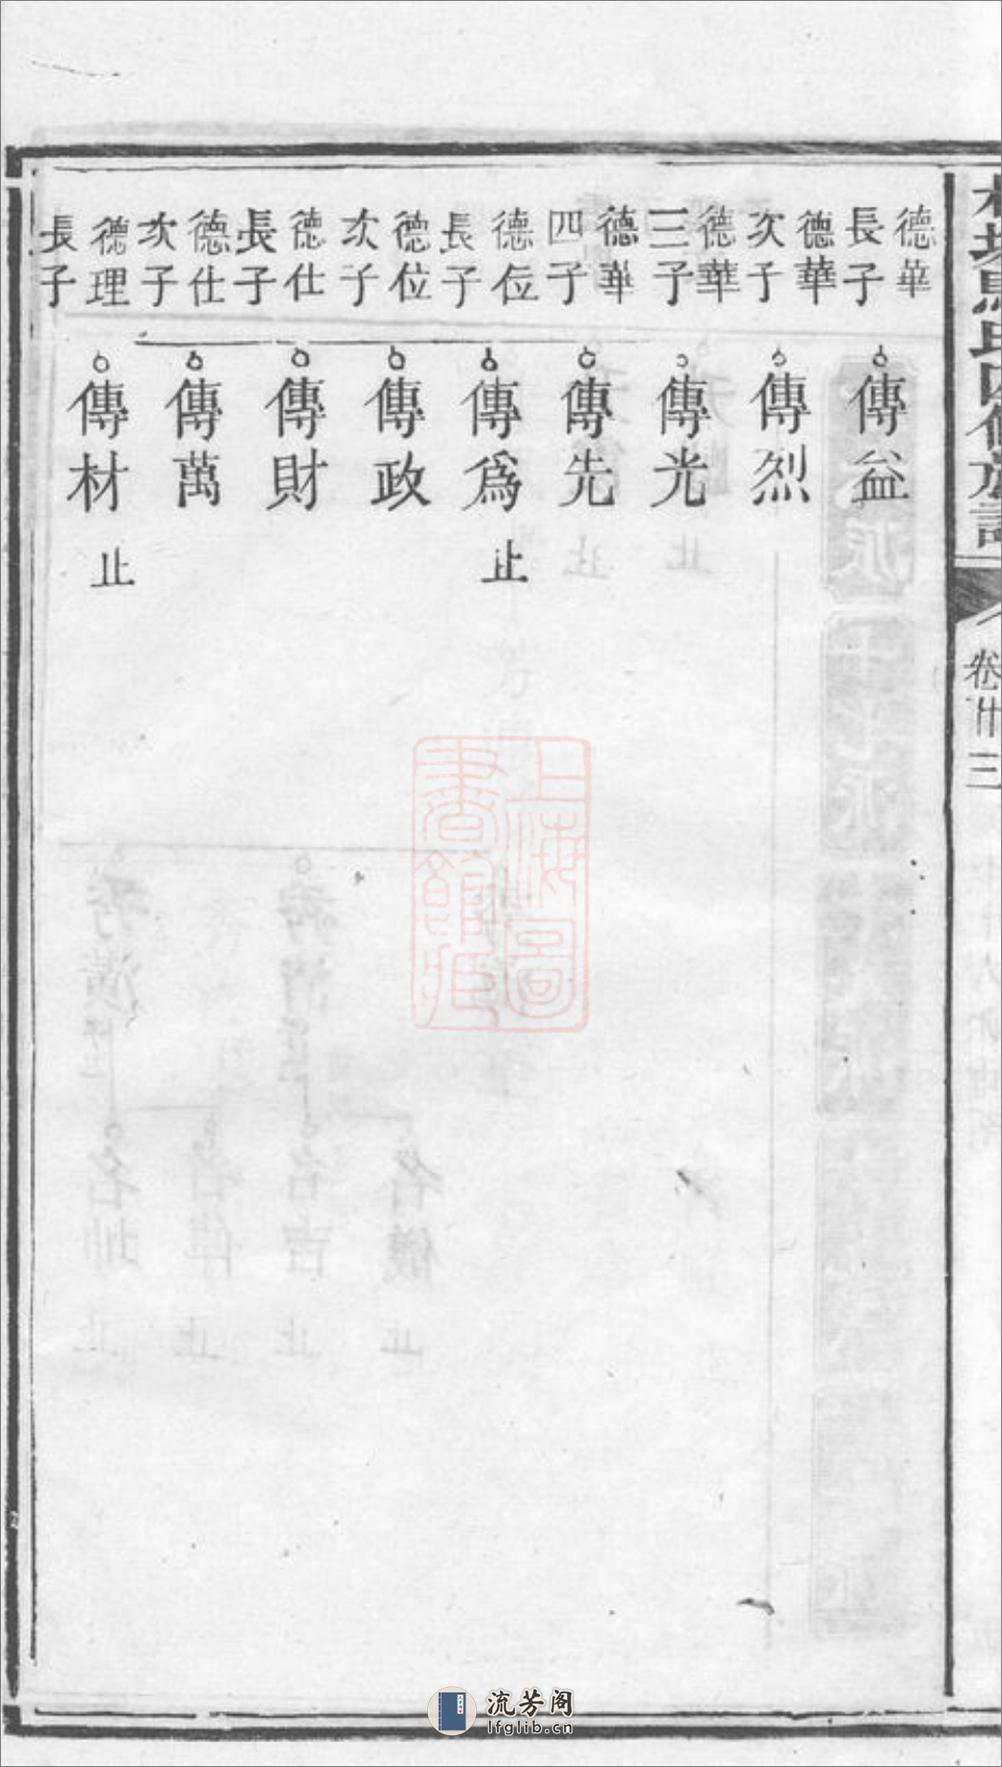 馬氏四修族譜
卷卅三
德華
長子
傳益
德華
次子
傳烈
德華
三子
傳光
德華
四子
傳先
德位
長子
傳為
止
德位
次子
傳政
德仕
長子
傳財
德仕
次子
傳萬
德理
長子
傳材
止
上海圖
書館藏
流芳阁
lfglib.cn